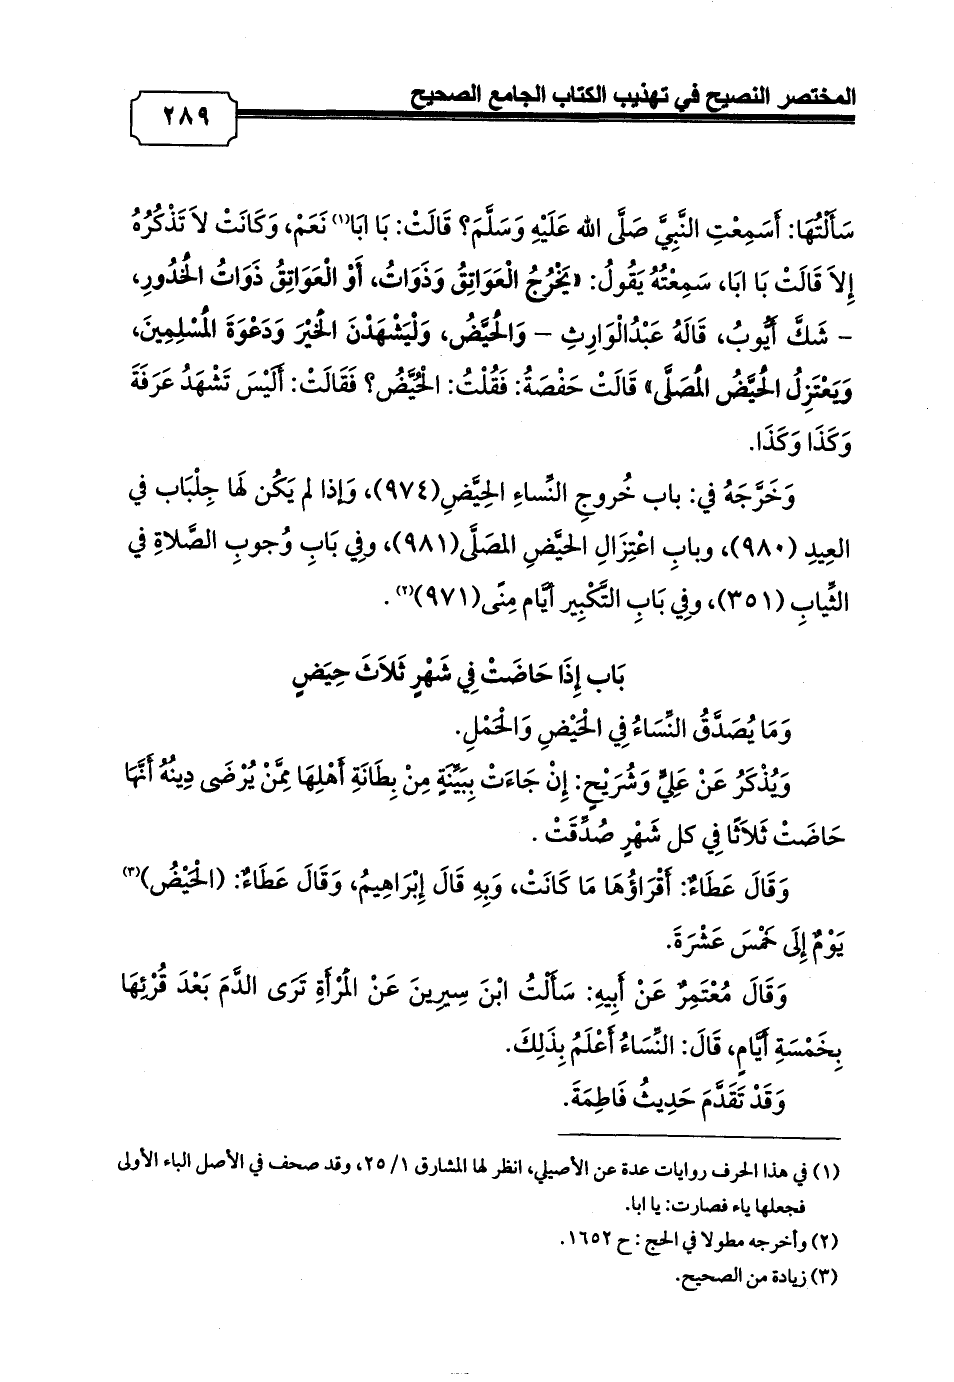 المختصر النصيح في تهذيب الكتاب الجامع الصحيح
٢٨٩
سَأَلْتُهَا: أَسَمِعْتِ النَّبِيَّ صَلَّى الله عَلَيْهِ وَسَلَّمَ؟ قَالَتْ: بَا ابَا(١) نَعَمْ، وَكَانَتْ لاَ تَذْكُرُهُ
إِلاَ قَالَتْ بَا ابَا، سَمِعْتُهُ يَقُولُ: «يَخْرُجُ الْعَوَاتِقُ وَذَوَاتُ، أَوْ الْعَوَاتِقُ ذَوَاتُ الْخُدُورِ،
- شَكَّ أَيُّوبُ، قَالَهُ عَبْدُالْوَارِثِ - وَالْحُيَّضُ، وَلْيَشْهَدْنَ الْخَيْرَ وَدَعْوَةَ الْمُسْلِمِينَ،
وَيَعْتَزِلُ الْحُيَّضُ الْمُصَلَّى» قَالَتْ حَفْصَةُ: فَقُلْتُ: الْحُيَّضُ؟ فَقَالَتْ: أَلَيْسَ تَشْهَدُ عَرَفَةَ
وَكَذَا وَكَذَا.
وَخَرَّجَهُ في: باب خُروجِ النِّساءِ الحِيَّضِ(٩٧٤)، وَإذا لم يَكُن لَها جِلْبَاب في
العِيدِ (٩٨٠)، وبابِ اعْتِزَالِ الحيَّضِ المصَلَّى(٩٨١)، وفِي بَابِ وُجوبِ الصَّلاةِ في
الثِّيابِ (٣٥١)، وفِي بَابِ التَّكْبِيرِ أَيَّام مِنًى(٩٧١)(٢).
بَاب إِذَا حَاضَتْ فِي شَهْرٍ ثَلاَثَ حِيَضٍ
وَمَا يُصَدَّقُ النِّسَاءُ فِي الْحَيْضِ وَالْحَمْلِ.
وَيُذْكَرُ عَنْ عَلِيٍّ وَشُرَيْحٍ: إِنْ جَاءَتْ بِبَيِّنَةٍ مِنْ بِطَانَةِ أَهْلِهَا مِمَّنْ يُرْضَى دِينُهُ أَنَّهَا
حَاضَتْ ثَلاَثًا فِي كل شَهْرٍ صُدِّقَتْ.
وَقَالَ عَطَاءٌ: أَقْرَاؤُهَا مَا كَانَتْ، وَبِهِ قَالَ إِبْرَاهِيمُ، وَقَالَ عَطَاءٌ: (الْحَيْضُ)(٣)
يَوْمٌ إِلَى خَمْسَ عَشْرَةَ.
وَقَالَ مُعْتَمِرٌ عَنْ أَبِيهِ: سَأَلْتُ ابْنَ سِيرِينَ عَنْ الْمَرْأَةِ تَرَى الدَّمَ بَعْدَ قُرْئِهَا
بِخَمْسَةِ أَيَّامٍ، قَالَ: النِّسَاءُ أَعْلَمُ بِذَلِكَ.
وَقَدْ تَقَدَّمَ حَدِيثُ فَاطِمَةَ.
(١) في هذا الحرف روايات عدة عن الأصيلي، انظر لها المشارق ١/ ٢٥، وقد صحف في الأصل الباء الأولى
فجعلها ياء فصارت: يا ابا.
(٢) وأخرجه مطولا في الحج : ح ١٦٥٢.
(٣) زيادة من الصحيح.